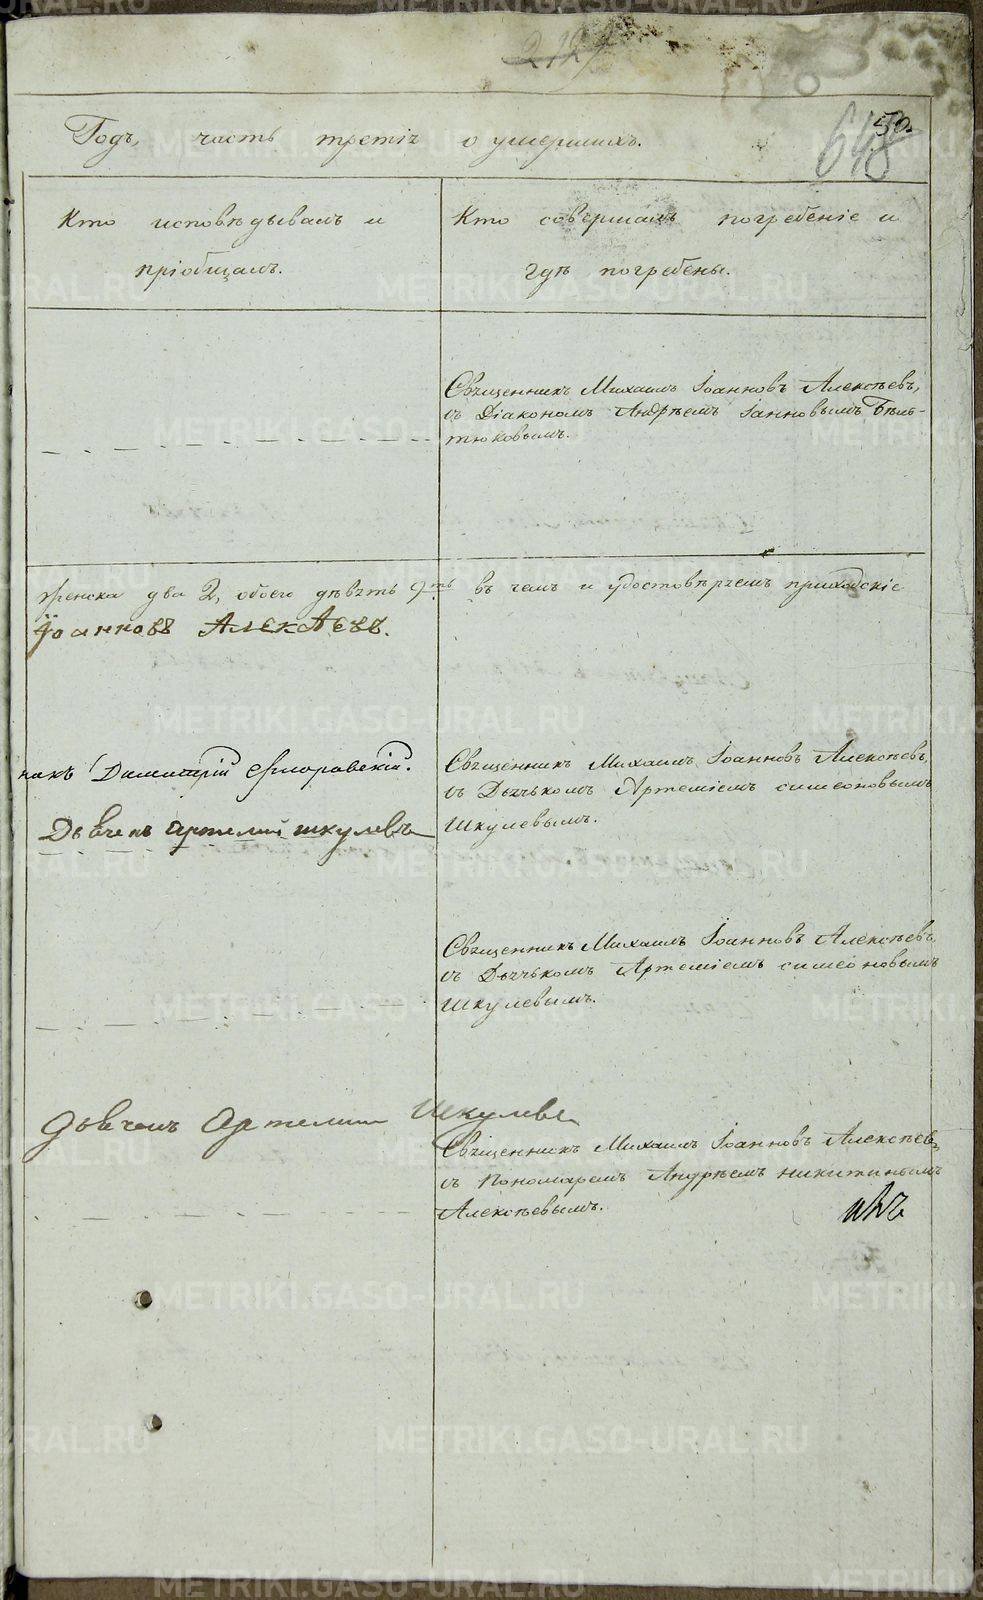 212
50.
648
Годъ, часть третія о умершихъ.
Кто исповѣдывалъ и
пріобщалъ.
Кто совершалъ погребеніе и
гдѣ погребены.
Священникъ Михаилъ Іоанновъ Алексѣевъ,
съ Діакономъ Андрѣемъ Іанновымъ Бѣль-
тюковымъ.
женска два 2, обоего дѣвять 9ть въ чемъ и удостовѣряемъ приходскіе
Іоанновъ Алексѣевъ.
никъ Димитрій
Дьячекъ Артемий Шкулевъ
Священникъ Михаилъ Іоанновъ Алексѣевъ,
съ Дьячькомъ Артеміемъ симеоновымъ
Шкулевымъ.
Священникъ Михаилъ Іоанновъ Алексѣевъ,
съ Дьячькомъ Артеміемъ симеоновымъ
Шкулевымъ.
Дьячекъ Артемий Шкулевъ
Священникъ Михаилъ Іоанновъ Алексѣевъ,
съ Пономаремъ Андрѣемъ никитинымъ
Алексѣевымъ.
METRIKI.GASO-URAL.RU